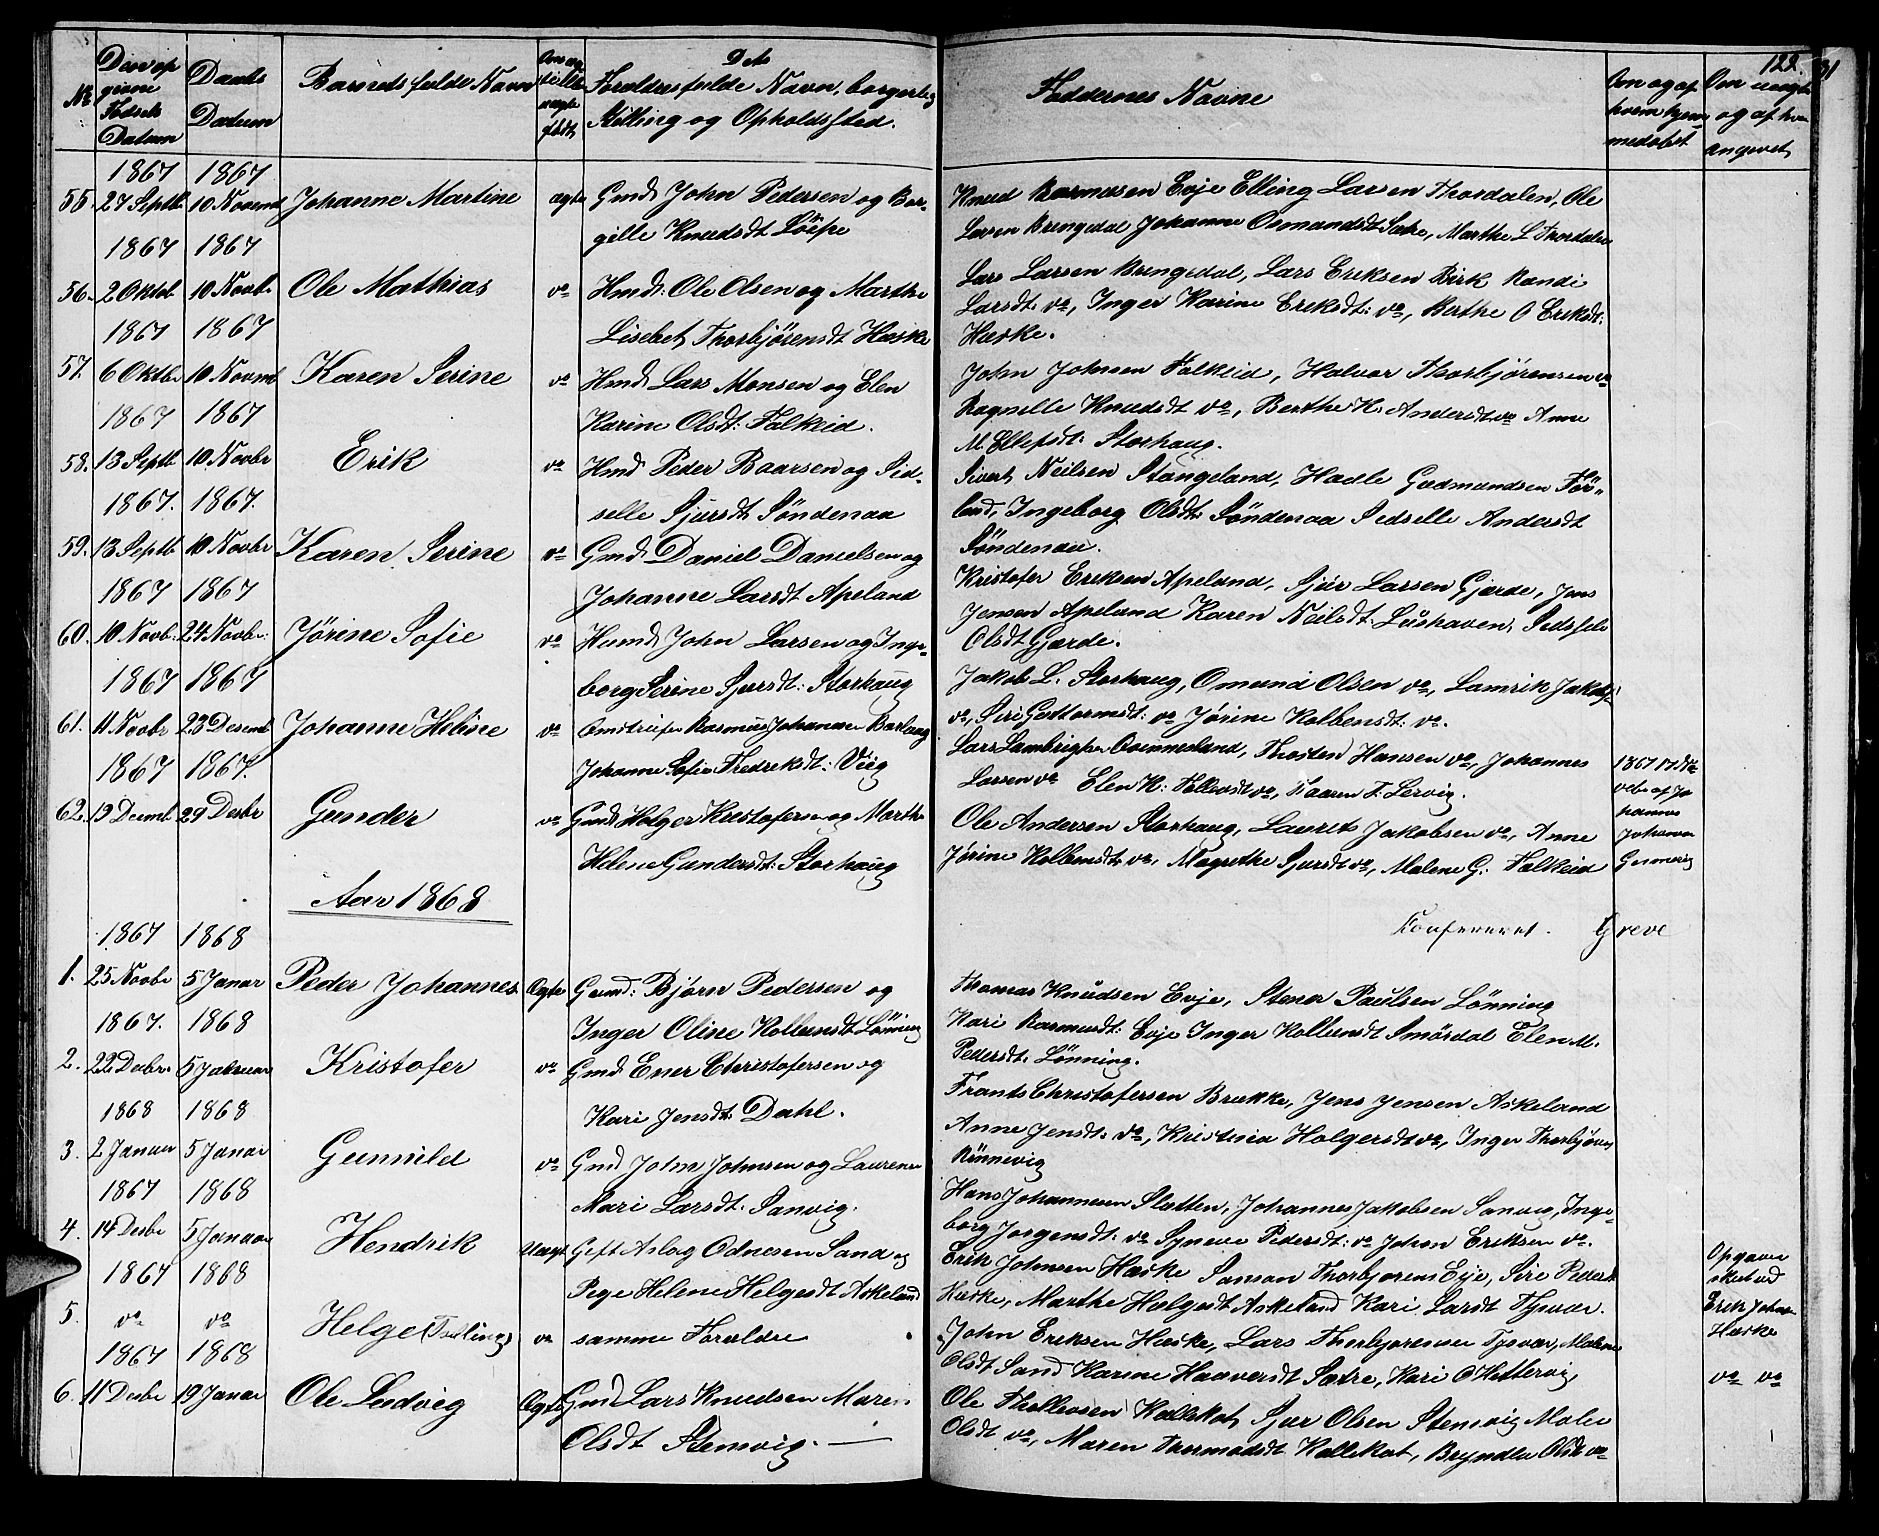 122.
31
No
Den op
givne
Fødsels
Datum
Daabs
Datum
Barnets fulde Navn
Om æg
te eller
uægte
født
Dets
Forældres fulde Navn, borgerlig
Stilling og Opholdssted.
Faddernes Navne
Om og af
hvem hjem
medøbt
Om uægte
og af hvem
angivet
1867 1867
55. 27 Septb 10 Novemb Johanne Martine ægte Gmd. John Pedersen og Bor-
gille Knudsdt Löipe
Knud Rasmusen Evje Elling Larsen Thordalen, Ole
Larsen Bringedal Johanne Osmundsdt Sætre, Marthe L Thordalen
1867 1867
56. 2 Oktob 10 Novbr Ole Mathias do Hmd: Ole Olsen og Marthe
Lisebet Thorbjörensdt Hæske
Lars Larsen Bringedal, Lars Eriksen Birk Randi
Larsdt: do, Inger Karine Eriksdt: do, Berthe O Eriksdt:
Hæske.
1867 1867
57. 6 Oktbr 10 Novmb Karen Serine do Hmd. Lars Monsen og Elen
Karine Olsdt: Falkeid.
John Johnsen Falkeid, Halvor Thorbjörensen do
Ragnille Knudsdt do, Berthe K. Andersdt do Anne
M. Ellefsdt: Storhaug.
1867 1867
58. 13 Septb 10 Novbr Erik do Hmd. Peder Baarsen og Sid-
selle Sjursdt Söndenaa
Sivert Neilsen Stangeland, Hadle Gudmundsen För-
land, Ingeborg Olsdt. Söndenaa Sedselle Andersdt
Söndenaa.
1867. 1867.
59. 13 Septb 10 Novbr Karen Serine do Gmd. Daniel Danielsen og
Johanne Larsdt Apeland
Kristofer Eriksen Apeland, Sjur Larsen Gjerde, Jens
Jensen Apeland Karen Neilsdt. Lushaven, Sedselle
Olsdt Gjærde.
1867 1867
60. 10 Novb. 24 Novbr: Jørine Sofie do Husmd. John Larsen og Inge-
borg Serine Sjursdt: Storhaug
Jakob L. Storhaug, Omund Olsen do, Lamrik Jakobs:
do, Siri Guttormsdt: do Jørine Kolbensdt: do.
1867 1867
61. 11 Novbr 23 Desemb Johanne Heline do Rasmus Johannesen
Johanne Sofie Fredreksdt: Viig
Lars Lambrigtsen Qvemmerland, Thosten Hansen do, Johannes
Larsen do Elen K: Tellevsdt do, Kaaren T. Lervig.
1867 1867.
1867 17 Dc
vebr af Jo
hannes
Johannes
62. 19 Decmb 29 Desbr Gunder do Gmd. Holger Kristofersen og Marthe
Helene Gundersdt: Storhaug
Ole Andersen Storhaug, Laurits Jakobsen do, Anne
Jørine Kolbensdt do, Magrethe Sjursdt do, Malene G: Falkeid
Aar 1868
Konfereret. Greve
1867 1868
1. 25 Novbr 5 Januar Peder Johannes Ægte Gmd: Bjørn Pedersen og
Inger Oline Kolbensdt Lönning
Thomas Knudsen Evje, Stener Paulsen Lönning
Kari Rasmusdt: Evje Inger Kolbensdt Smörsdal Elen M.
Pedersdt. Lönning.
1867. 1868
2. 22 Decbr. 5 Januar Kristofer do Gmd. Ener Christofersen og
Kari Jensdt. Dahl.
Frants Christofersen Brække, Jens Jensen Askeland
Anne Jensdt: do, Kristina Holgersdt do, Inger Thorbjörns
Rönnevig
1868 1868
3. 2 Januar 5 Januar Gunvild do Gmd John Johnsen og Laurense
Mari Larsdt. Sanvig.
Hans Johannesen Slætten, Johannes Jakobsen Sanvig, Inge-
borg Jorgensdt: do Syneve Pedersdt: do Johan Eriksen do.
1867 1868
4. 14 Desbr 5 Januar Hendrik Uægt Gift Aslag Odnesen Sand og
Pege Helene Helgesdt Askeland
Erik Johnsen Hæske Samson Thorbjorens Evje, Sire Pedersdt
Hæske, Marthe Hælgesdt Askeland Kari Larsdt Tysvær.
Opgaven
sket ved
Erik Johnsen
Hæske
1867 1868
5. do do Helge (Tvilling) do samme Forældre
John Eriksen Hæske, Lars Thorbjorensen Tysvær, Malene
Olsdt Sand Karine Haaversdt Sætre, Kari O Hettervig
do do
1867 1868
6. 11 Desbr 19 Januar Ole Ludvig Ægte Gmd Lars Knudsen Maren
Olsdt Stemvig. —
Ole Thollevsen Kallekot, Sjur Olsen Stemvig Malene
Olsdt do, Maren Thormodsdt Kallekot, Bryndla Olsdt do